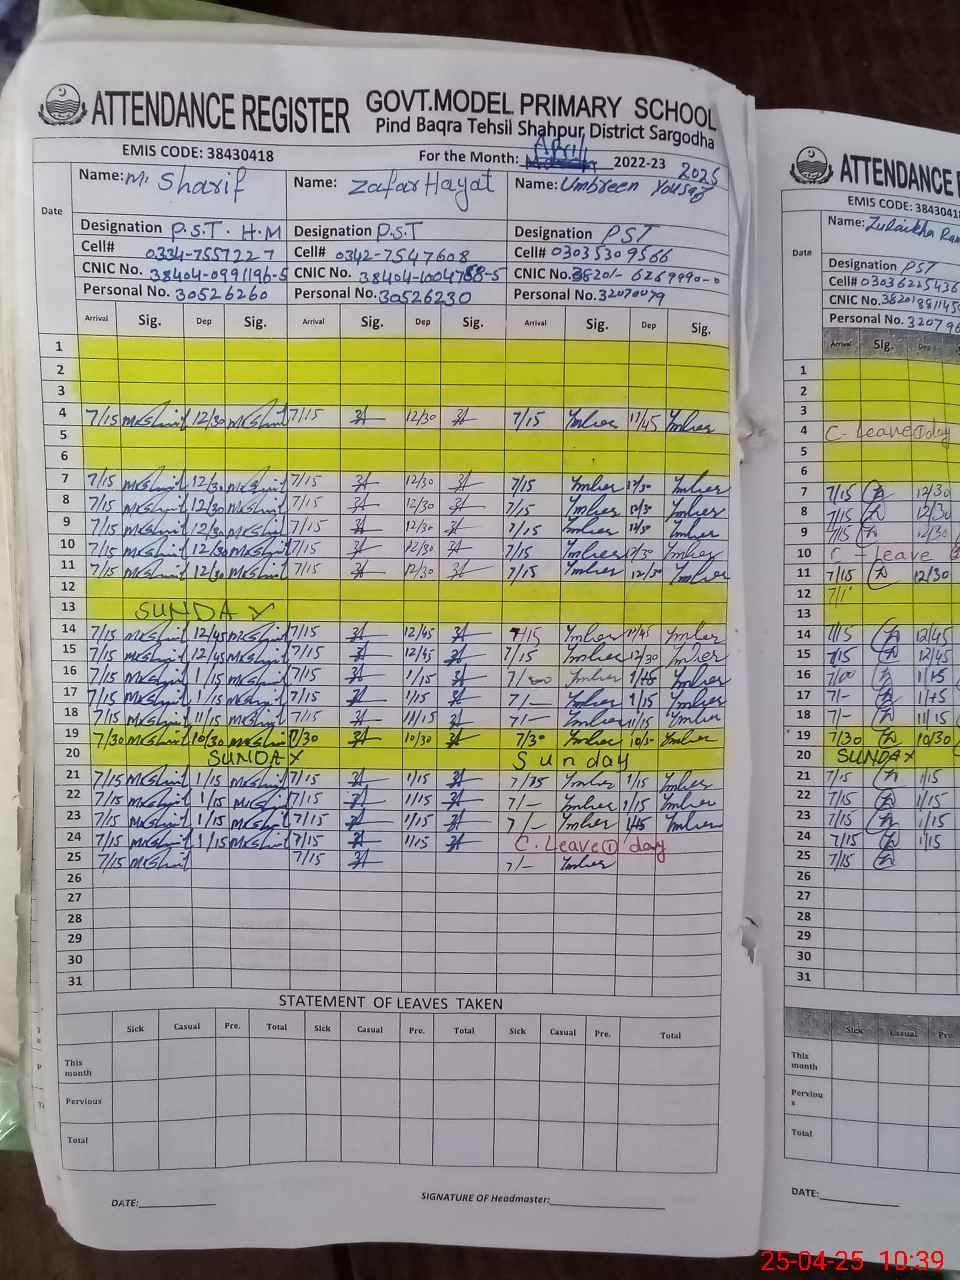 ATTENDANCE REGISTER GOVT.MODEL PRIMARY SCHOOL
Pind Baqra Tehsil Shahpur, District Sargodha
EMIS CODE: 38430418 For the Month: April 2022-23 2025
Date
Name: M. Sharif Name: Zafar Hayat Name: Umbreen Yousaf
Designation P.S.T. H.M Designation P.S.T Designation PST
Cell# 0334-7557227 Cell# 0342-7547608 Cell# 03035309566
CNIC No. 38404-0991196-5 CNIC No. CNIC No. 38201-6269990-0
Personal No. 30526260 Personal No. 30526230 Personal No. 32070079
Arrival Sig. Dep Sig. Arrival Sig. Dep Sig. Arrival Sig. Dep Sig.
1
2
3
4 7/15 12/30 7/15 12/30 7/15 11/45
5
6
7 7/15 12/30 7/15 12/30 7/15 12/30
8 7/15 12/30 7/15 12/30 7/15 12/30
9 7/15 12/30 7/15 12/30 7/15
10 7/15 12/30 7/15 12/30 7/15 12/30
11 7/15 12/30 7/15 12/30 7/15 12/30
12
13 SUNDAY
14 7/15 12/45 7/15 12/45 7/15
15 7/15 12/45 7/15 12/45 7/15 12/30
16 7/15 1/15 7/15 1/15
17 7/15 1/15 7/15 1/15 7/- 1/15
18 7/15 11/15 7/15 11/15 7/- 11/15
19 7/30 10/30 7/30 10/30 7/30
20 SUNDAY Sunday
21 7/15 1/15 7/15 1/15 1/15
22 7/15 1/15 7/15 1/15 7/- 1/15
23 7/15 1/15 7/15 1/15 7/- 1/45
24 7/15 1/15 7/15 1/15 C. Leave ① day
25 7/15 7/15 7/-
26
27
28
29
30
31
STATEMENT OF LEAVES TAKEN
Sick Casual Pre. Total Sick Casual Pre. Total Sick Casual Pre. Total
This month
Pervious
Total
DATE: SIGNATURE OF Headmaster:
ATTENDANCE
EMIS CODE:
Date
Name: Zulaikha
Designation PST
Cell# 03036225436
CNIC No.
Personal No.
Arrival Sig. Dep
1
2
3
4 C. Leave ① day
5
6
7 7/15 12/30
8 7/15 12/30
9 7/15 12/30
10 C - Leave
11 7/15 12/30
12
13
14 7/15 12/45
15 7/15 12/45
16 7/00
17 7/-
18 7/- 11/15
19 7/30 10/30
20 SUNDAY
21 7/15 1/15
22 7/15 1/15
23 7/15 1/15
24 7/15 1/15
25 7/15
26
27
28
29
30
31
Sick Casual
This month
Perviou
s
Total
DATE:
25-04-25 10:39